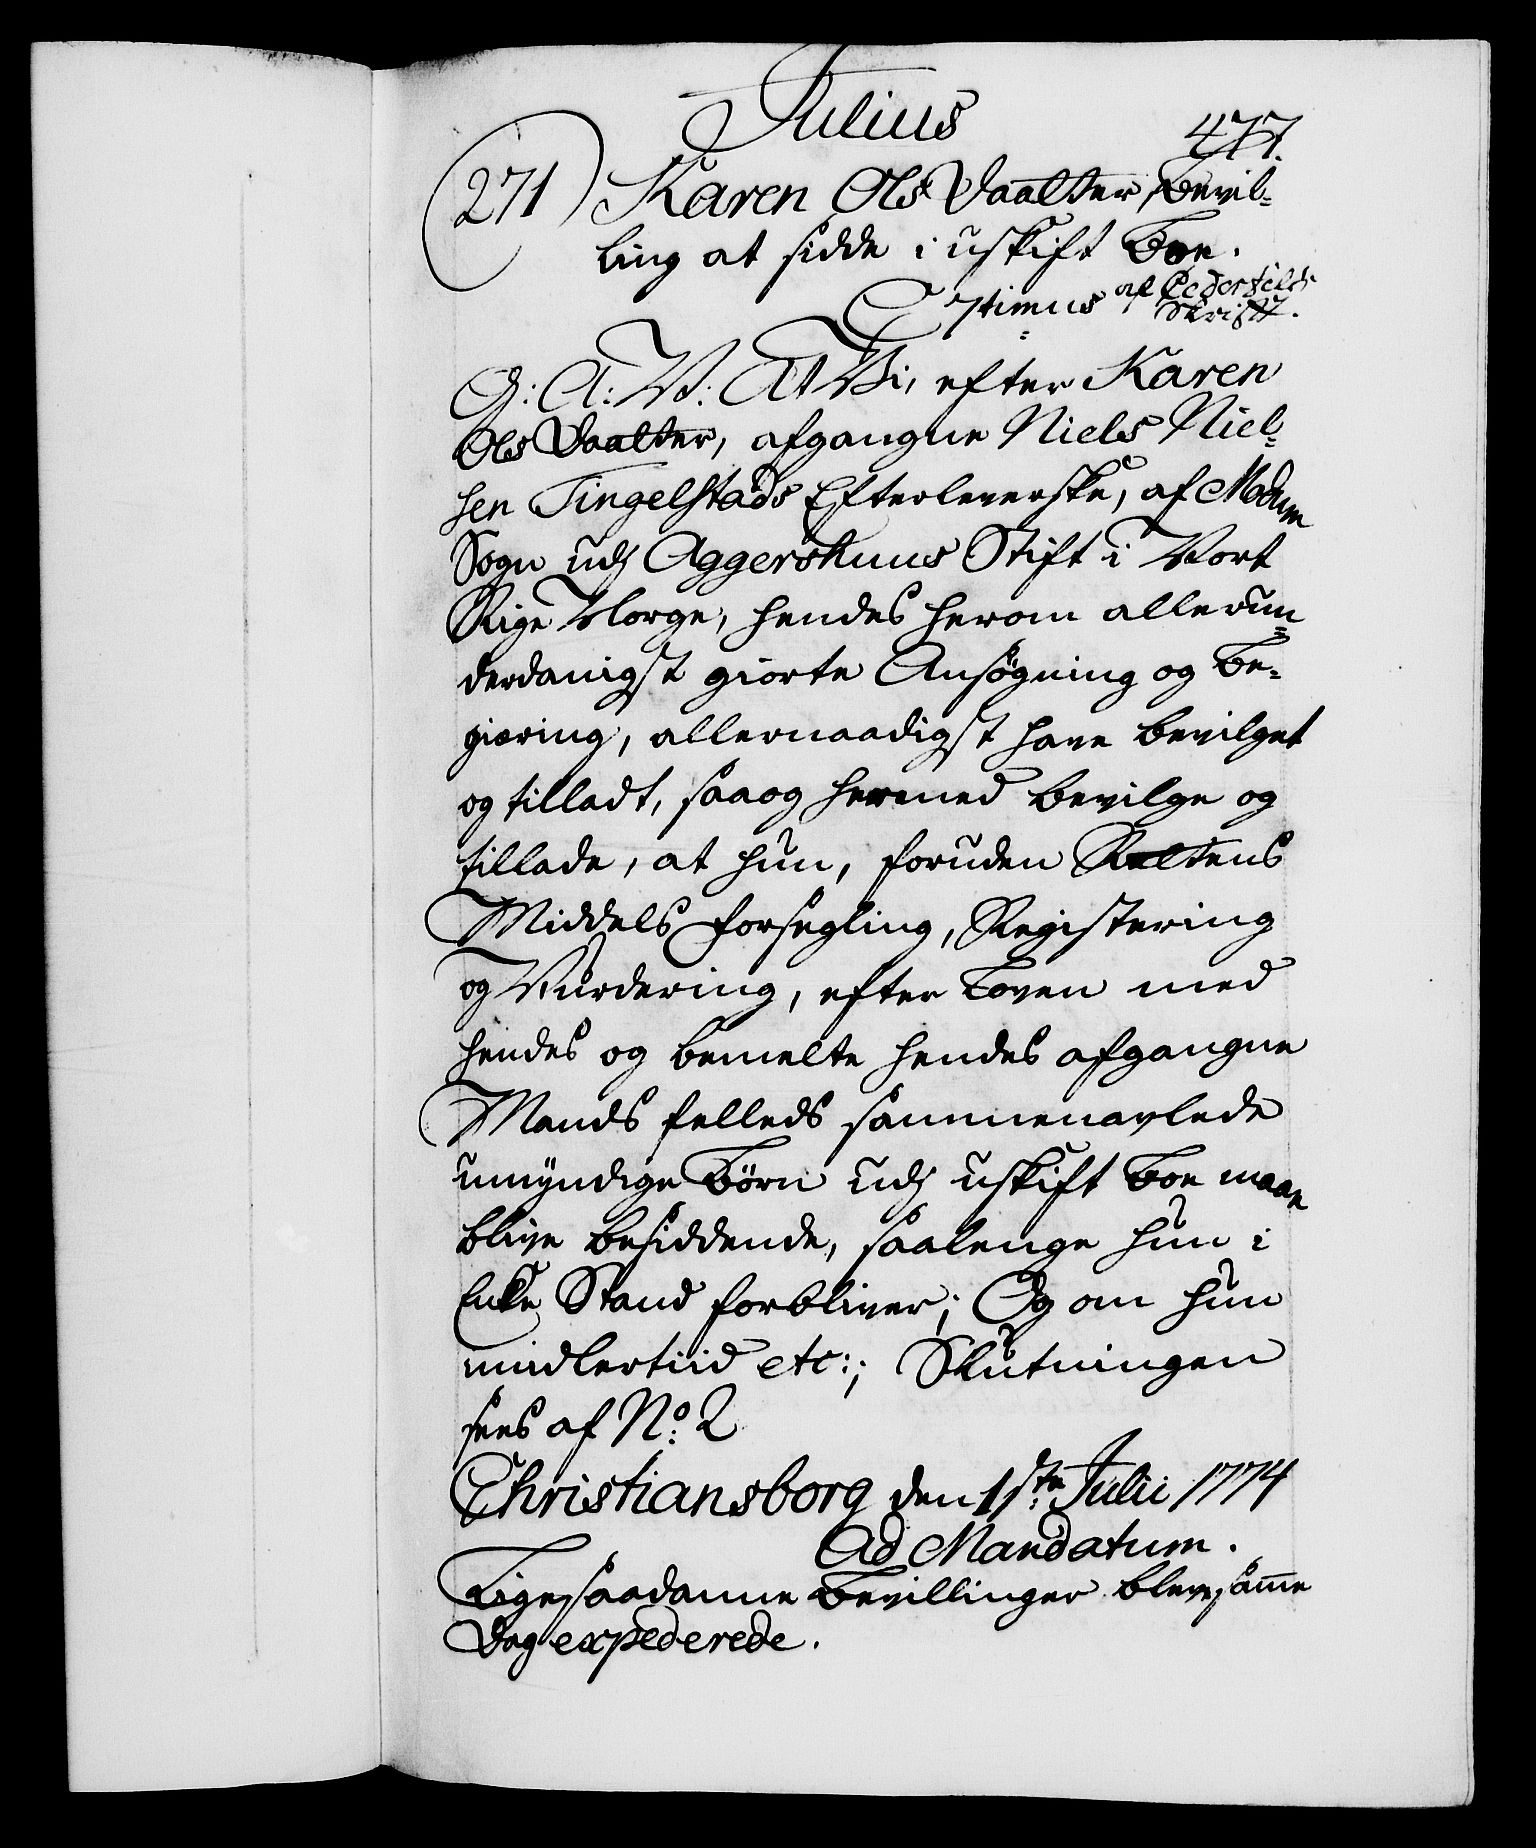 Julius
477.
271) Karen Ols Daatter, Bevil-
ling at sidde i uskift Boe.
af Pedersfeldts
Skrift.
G: A: V: At Vi, efter Karen
Ols Daatter, afgangne Niels Niel-
sen Tingelstads Efterleverske, af Modum
Sogn udj Aggershuus Stift i Vort
Rige Norge, hendes herom allerun-
derdanigst giorte Ansøgning og Be-
giering, allernaadigst have bevilget
og tilladt, saa og hermed bevilge og
tillade, at hun, foruden Rettens
Middels Forsegling, Registering
og Vurdering, efter Loven med
hendes og bemelte hendes afgangne
Mands felleds sammenavlede
umyndige Børn udj uskift Boe maae
blive besiddende, saalenge hun i
Enke Stand forbliver; Og om hun
midlertiid etc:; Slutningen
sees af No: 2
Christiansborg den 1ste Julii 1774
Ad Mandatum.
Ligesaadanne Bevillinger bleve samme
Dag expederede.